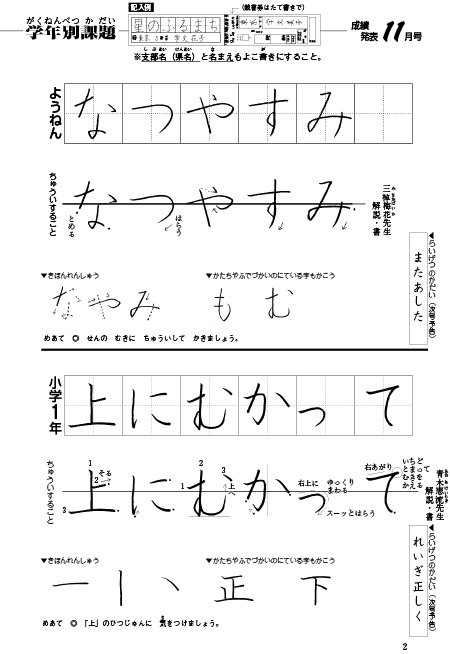 がくねんべつ かだい
学年別課題
記入例
星のふるまち
学文花子
(鉛書券はたて書きで)
成績発表 11月号
※支部名(県名)と名まえもよこ書きにすること。
ようねん
なつやすみ
ちゅういすること
なつやすみ
とめる
はらう
三棹梅花先生
解説・書
◀らいげつのかだい(次号予告)
またあした
▼きほんれんしゅう
なやみ
▼かたちやふでづかいのにている字もかこう
もむ
めあて ◎ せんの むきに ちゅういして かきましょう。
小学1年
上にむかって
ちゅういすること
上にむかって
1
2
そる
3
1
2
3
上へ
右上に
ゆっくりまわる
スーッとはらう
右あがり
青木恵流先生
解説・書
◀らいげつのかだい(次号予告)
れいぎ正しく
▼きほんれんしゅう
一丨丶
▼かたちやふでづかいのにている字もかこう
正下
めあて ◎ 「上」のひつじゅんに 気をつけましょう。
2